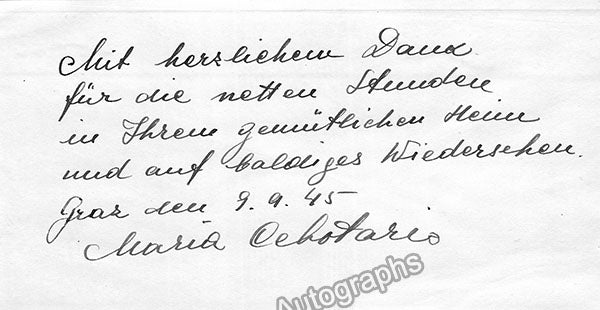 Mit herzlichem Dank
für die netten Stunden
in Ihrem gemütlichen Heim
und auf baldiges Wiedersehen.
Graz den 9.9.45
Maria Cebotaris
Autographs